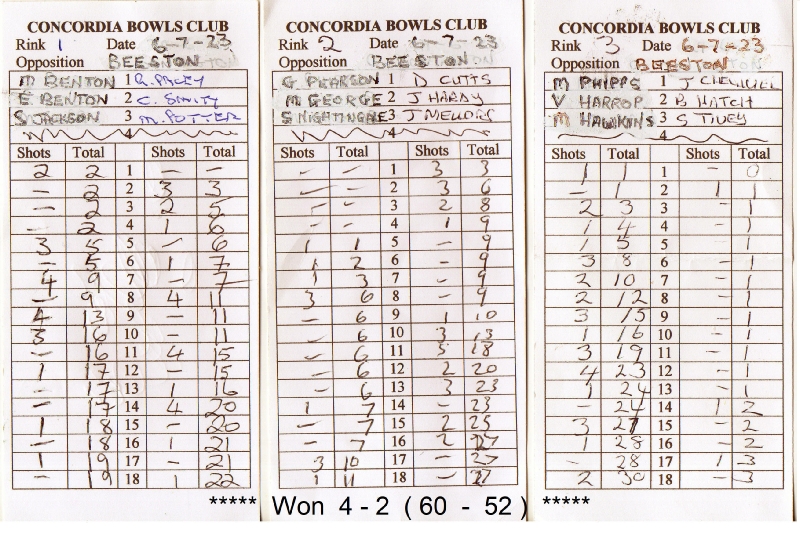 CONCORDIA BOWLS CLUB
Rink 1 Date 6-7-23
Opposition BEESTON
M BENTON 1
E BENTON 2
S JACKSON 3 M. POTTER
4
Shots Total Shots Total
2 2 1 - -
- 2 2 3 3
- 2 3 2 5
- 2 4 1 6
3 5 5 - 6
- 5 6 1 7
4 9 7 - 7
- 9 8 4 11
4 13 9 - 11
3 16 10 - 11
- 16 11 4 15
1 17 12 - 15
- 17 13 1 16
- 17 14 4 20
1 18 15 - 20
- 18 16 1 21
1 19 17 - 21
- 19 18 1 22
CONCORDIA BOWLS CLUB
Rink 2 Date 6-7-23
Opposition BEESTON
G. PEARSON 1 D CUTTS
M GEORGE 2 J HARDY
S NIGHTINGALE 3 J MELLORS
4
Shots Total Shots Total
- - 1 3 3
- - 2 3 6
- - 3 2 8
- - 4 1 9
1 1 5 - 9
1 2 6 - 9
1 3 7 - 9
3 6 8 - 9
- 6 9 1 10
- 6 10 3 13
- 6 11 5 18
- 6 12 2 20
- 6 13 3 23
1 7 14 - 23
- 7 15 2 25
- 7 16 2 27
3 10 17 - 27
1 11 18 - 27
CONCORDIA BOWLS CLUB
Rink 3 Date 6-7-23
Opposition BEESTON
M PHIPPS 1 J
V HARROP 2 B HATCH
M HAWKINS 3 S TIVEY
4
Shots Total Shots Total
1 1 1 - 0
- 1 2 1 1
2 3 3 - 1
1 4 4 - 1
1 5 5 - 1
3 8 6 - 1
2 10 7 - 1
2 12 8 - 1
3 15 9 - 1
1 16 10 - 1
3 19 11 - 1
4 23 12 - 1
1 24 13 - 1
- 24 14 1 2
3 27 15 - 2
1 28 16 - 2
- 28 17 1 3
2 30 18 - 3
***** Won 4 - 2 ( 60 - 52 ) *****